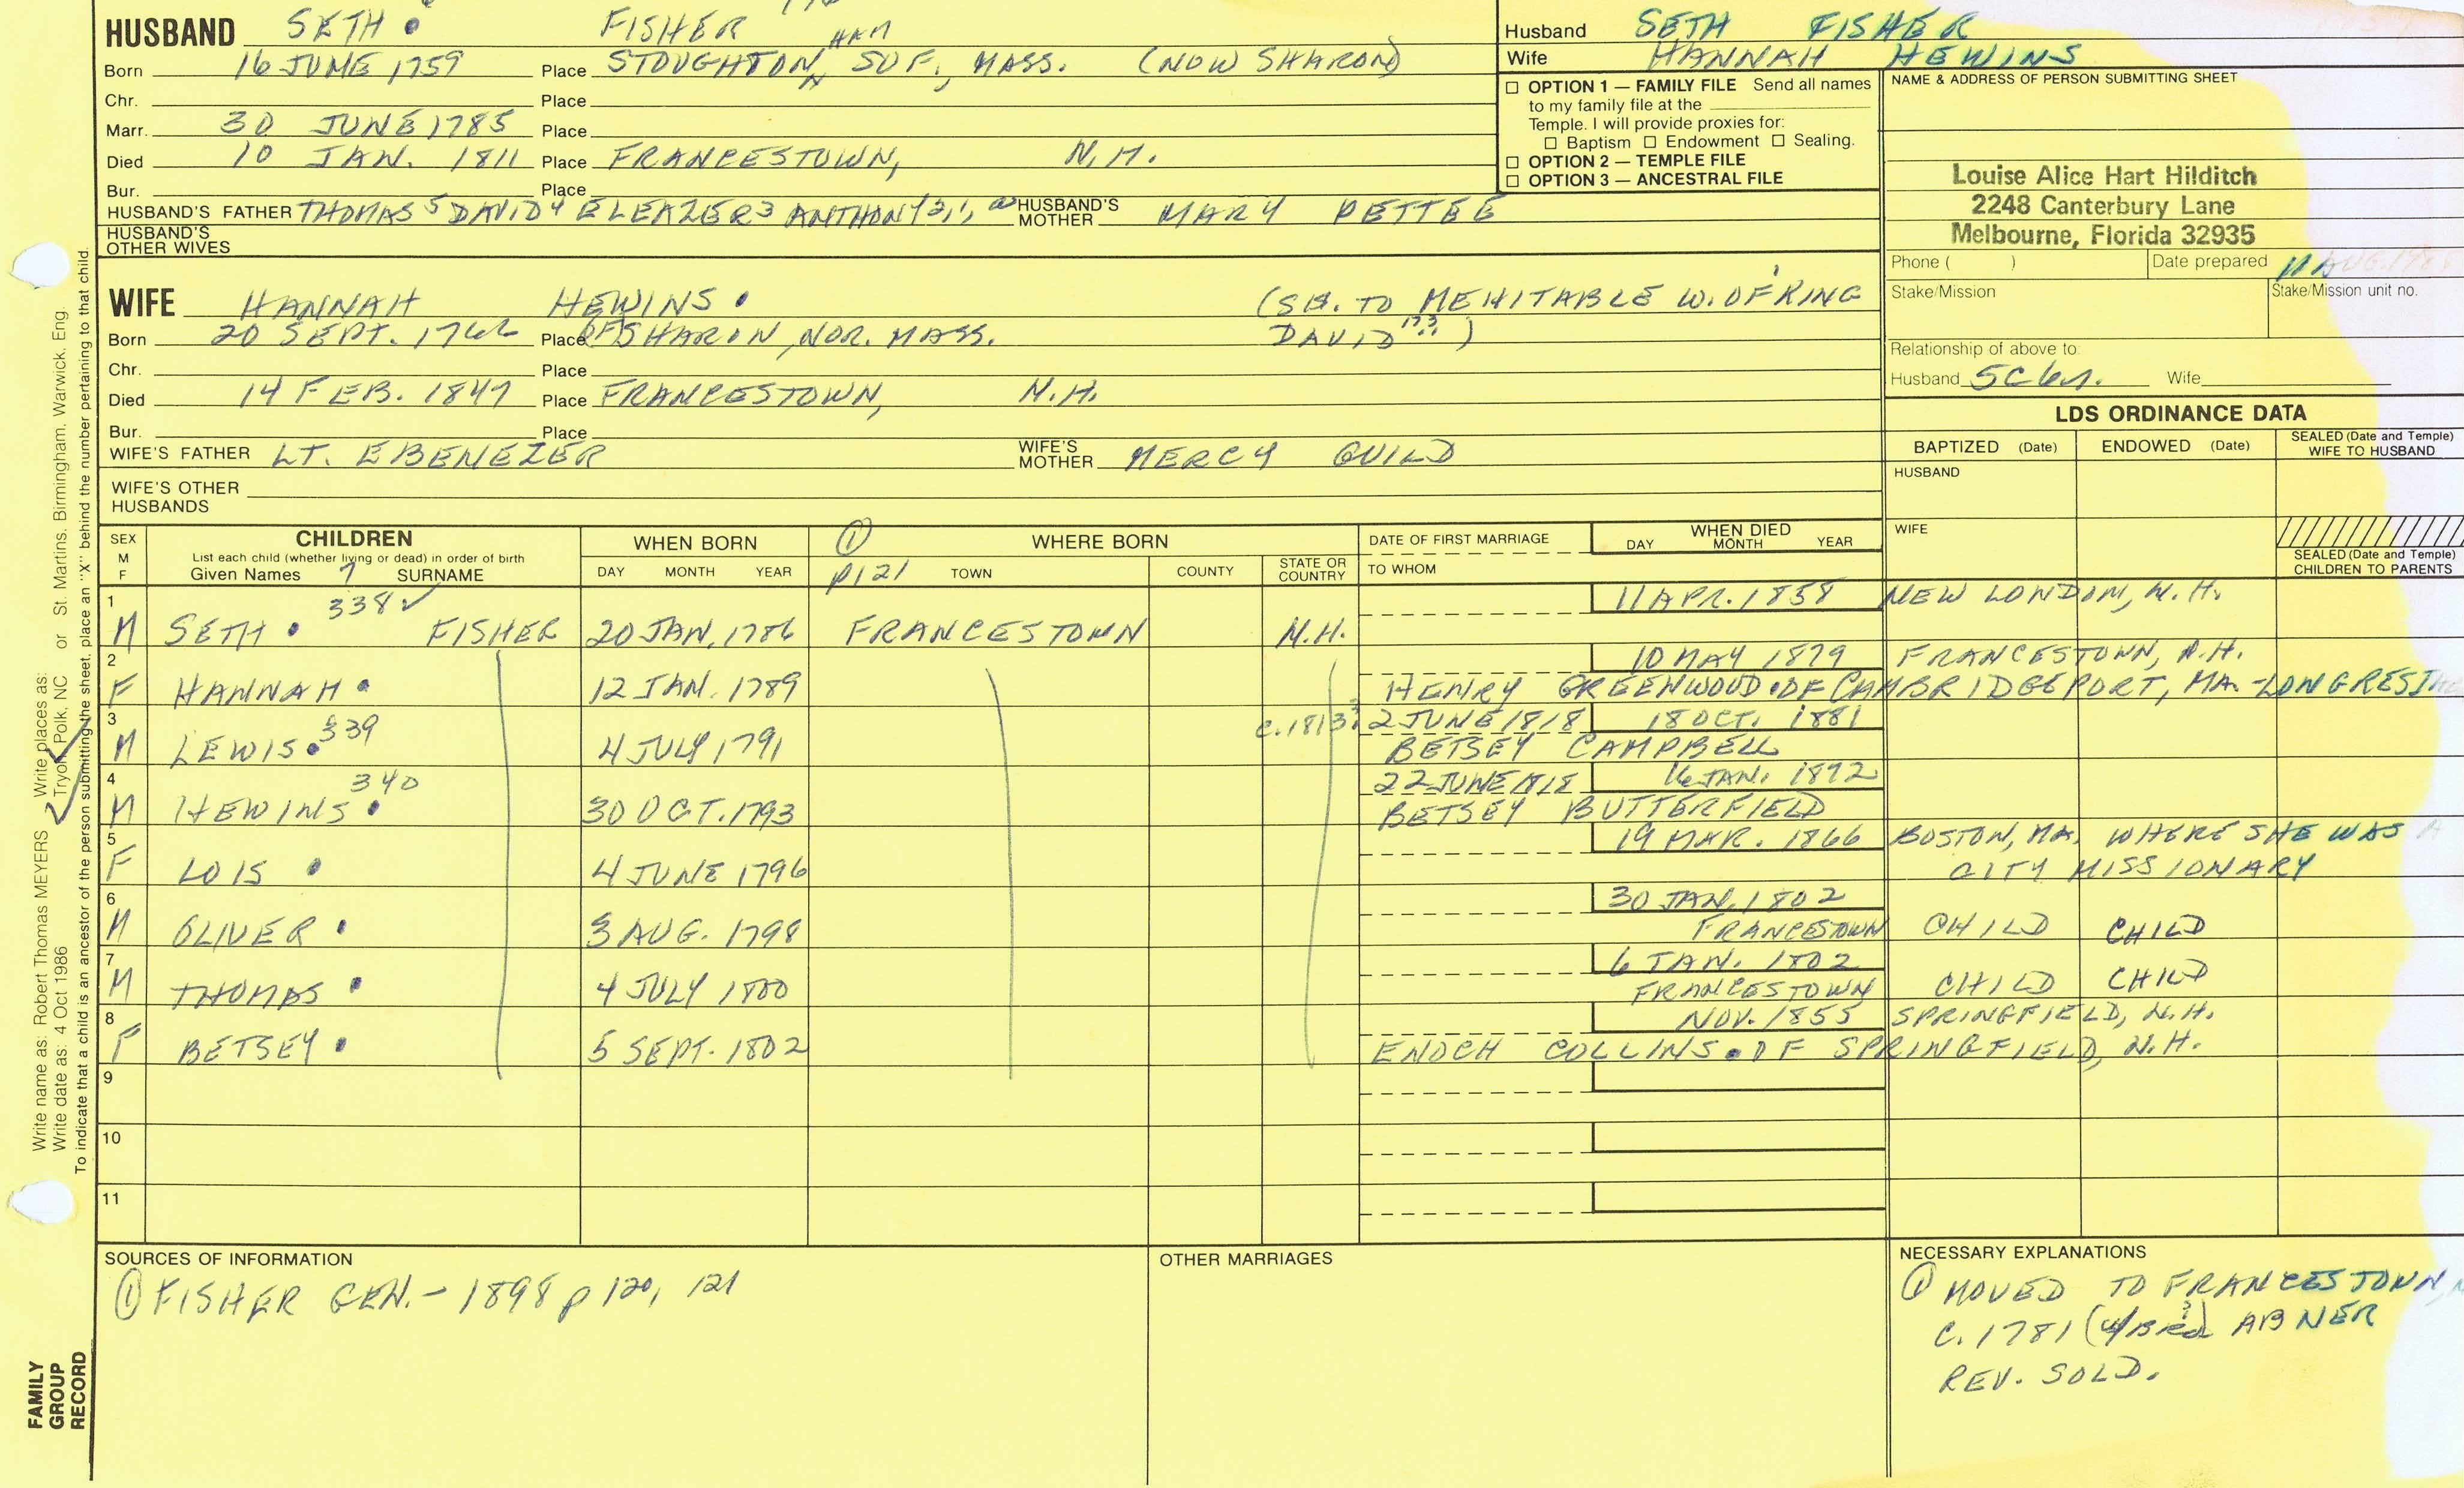 HUSBAND SETH FISHER
Born 16 JUNE 1759 Place STOUGHTON, SUF., MASS. (NOW SHARON)
Chr. Place
Marr. 30 JUNE 1785 Place
Died 10 JAN. 1811 Place FRANCESTOWN, N.H.
Bur. Place
HUSBAND'S FATHER THOMAS 5 DAVID 4 ELEAZER 3 ANTHONY 2,1, HUSBAND'S MOTHER MARY PETTEE
HUSBAND'S OTHER WIVES
Husband SETH FISHER
Wife HANNAH HEWINS
☐ OPTION 1 — FAMILY FILE Send all names
to my family file at the
Temple. I will provide proxies for:
☐ Baptism ☐ Endowment ☐ Sealing.
☐ OPTION 2 — TEMPLE FILE
☐ OPTION 3 — ANCESTRAL FILE
NAME & ADDRESS OF PERSON SUBMITTING SHEET
Louise Alice Hart Hilditch
2248 Canterbury Lane
Melbourne, Florida 32935
Phone ( ) Date prepared 11 AUG.
Stake/Mission Stake/Mission unit no.
Relationship of above to:
Husband Wife
WIFE HANNAH HEWINS (SIS. TO MEHITABLE W. OF KING
Born 20 SEPT. Place OF SHARON, NOR. MASS. DAVID )
Chr. Place
Died 14 FEB. 1847 Place FRANCESTOWN, N.H.
Bur. Place
WIFE'S FATHER LT. EBENEZER WIFE'S MOTHER MERCY GUILD
WIFE'S OTHER HUSBANDS
LDS ORDINANCE DATA
BAPTIZED (Date) ENDOWED (Date) SEALED (Date and Temple) WIFE TO HUSBAND
HUSBAND
WIFE
SEALED (Date and Temple) CHILDREN TO PARENTS
SEX M F
CHILDREN
List each child (whether living or dead) in order of birth
Given Names 7 SURNAME
WHEN BORN
DAY MONTH YEAR
① WHERE BORN
p121 TOWN COUNTY STATE OR COUNTRY
DATE OF FIRST MARRIAGE
TO WHOM
WHEN DIED
DAY MONTH YEAR
1 338 ✓ 11 APR. 1858 NEW LONDON, N.H.
M SETH FISHER 20 JAN. 1786 FRANCESTOWN N.H.
2 10 MAY 1879 FRANCESTOWN, N.H.
F HANNAH 12 JAN. 1789 HENRY GREENWOOD OF CAMBRIDGEPORT, MA.
3 339 c. 1813? 2 JUNE 1818 18 OCT. 1881
M LEWIS 4 JULY 1791 BETSEY CAMPBELL
4 340 22 JUNE 1818 16 JAN. 1872
M HEWINS 30 OCT. 1793 BETSEY BUTTERFIELD
5 19 MAR. 1866 BOSTON, MA. WHERE SHE WAS A
F LOIS 4 JUNE 1796 CITY MISSIONARY
6 30 JAN. 1802
M OLIVER 3 AUG. 1798 FRANCESTOWN CHILD CHILD
7 6 JAN. 1802
M THOMAS 4 JULY 1800 FRANCESTOWN CHILD CHILD
8 NOV. 1855 SPRINGFIELD, N.H.
F BETSEY 5 SEPT. 1802 ENOCH COLLINS OF SPRINGFIELD, N.H.
9
10
11
SOURCES OF INFORMATION
① FISHER GEN. - 1898 p 120, 121
OTHER MARRIAGES
NECESSARY EXPLANATIONS
① MOVED TO FRANCESTOWN,
C. 1781 ABNER
REV. SOLD.
Write name as: Robert Thomas MEYERS Write places as:
Write date as: 4 Oct 1986 Tryon, Polk, NC or St. Martins, Birmingham, Warwick, Eng.
To indicate that a child is an ancestor of the person submitting the sheet, place an "X" behind the number pertaining to that child.
FAMILY
GROUP
RECORD